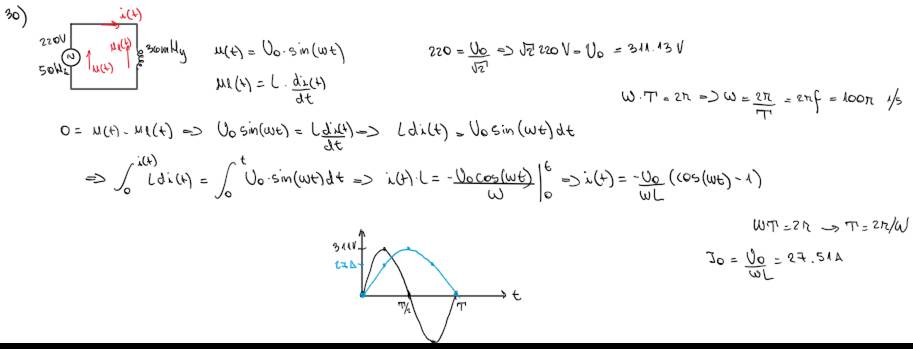 30)
i(t)
220V
50Hz
u(t)
ul(t)
u(t) = U0 · sin(wt)
ul(t) = L · di(t)/dt
220 = U0/√2 => √2 220V = U0 = 311.13V
W · T = 2π => W = 2π/T = 2πf = 100π 1/s
0 = u(t) - ul(t) => U0 sin(wt) = L di(t)/dt => L di(t) = U0 sin(wt) dt
=> ∫₀^i(t) L di(t) = ∫₀^t U0 · sin(wt) dt => i(t) · L = -U0 cos(wt)/W |₀^t => i(t) = -U0/WL (cos(wt) - 1)
WT = 2π → T = 2π/W
I0 = U0/WL = 27.51A
311V
27A
T/2
T
t